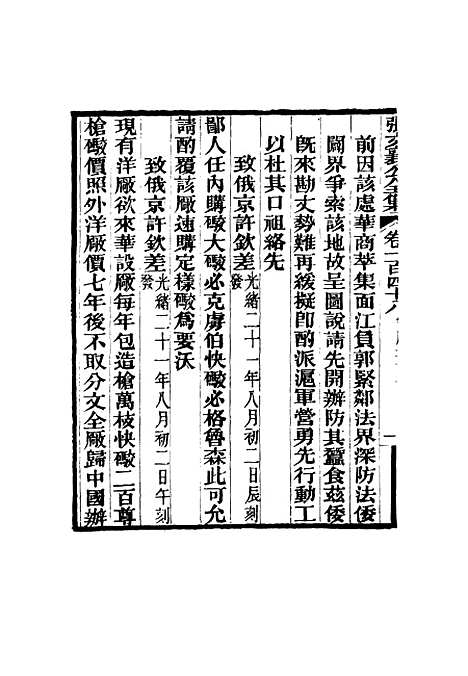 張文襄公全集 卷一百四十八
前因該處華商萃集面江負郭緊鄰法界深防法倭
闢界爭索該地故呈圖說請先開辦防其蠶食茲倭
既來勘丈勢難再緩擬卽酌派滬軍營勇先行動工
以杜其口祖絡先
致俄京許欽差光緒二十一年八月初二日辰刻發
鄙人任內購礮大礮必克虜伯快礮必格魯森此可允
請酌覆該廠速購定樣礮爲要沃
致俄京許欽差光緒二十一年八月初二日午刻發
現有洋廠欲來華設廠每年包造槍萬枝快礮二百尊
槍礮價照外洋廠價七年後不取分文全廠歸中國辦